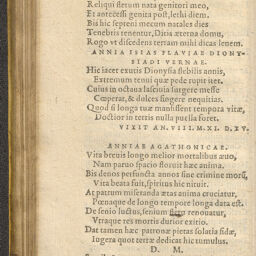 Reliqui fletum nata genitori meo,
Et antecessi genita post, lethi diem.
Bis hic septeni mecum natales dies
Tenebris tenentur, Ditis æterna domu,
Rogo vt discedens terram mihi dicas leuem.
ANNIA ISIAS FLAVIAE DIONY-
SIADI VERNAE.
Hic iacet exutis Dionysia flebilis annis,
Extremum tenui quæ pede rupit iter.
Cuius in octaua lasciuia surgere messe
Cœperat, & dulces fingere nequitias.
Quod si longa tuæ mansissent tempora vitæ,
Doctior in terris nulla puella foret.
VIXIT AN. VIII. M. XI. D. XV.
ANNIAE AGATHONICAE.
Vita breuis longo melior mortalibus æuo,
Nam paruo spacio floruit hæc anima.
Bis denos perfuncta annos sine crimine mors,
Vita beata fuit, spiritus hic nituit.
At patrum miseranda ætas anima cruciatur,
Pœnaque de longo tempore longa data est.
De senio luctus, senium renouatur,
Vtraque res mortis durior exitio.
Dat tamen hæc patronæ pietas solatia fidæ,
Iugera quot terræ dedicat hic tumulus.
D. M.